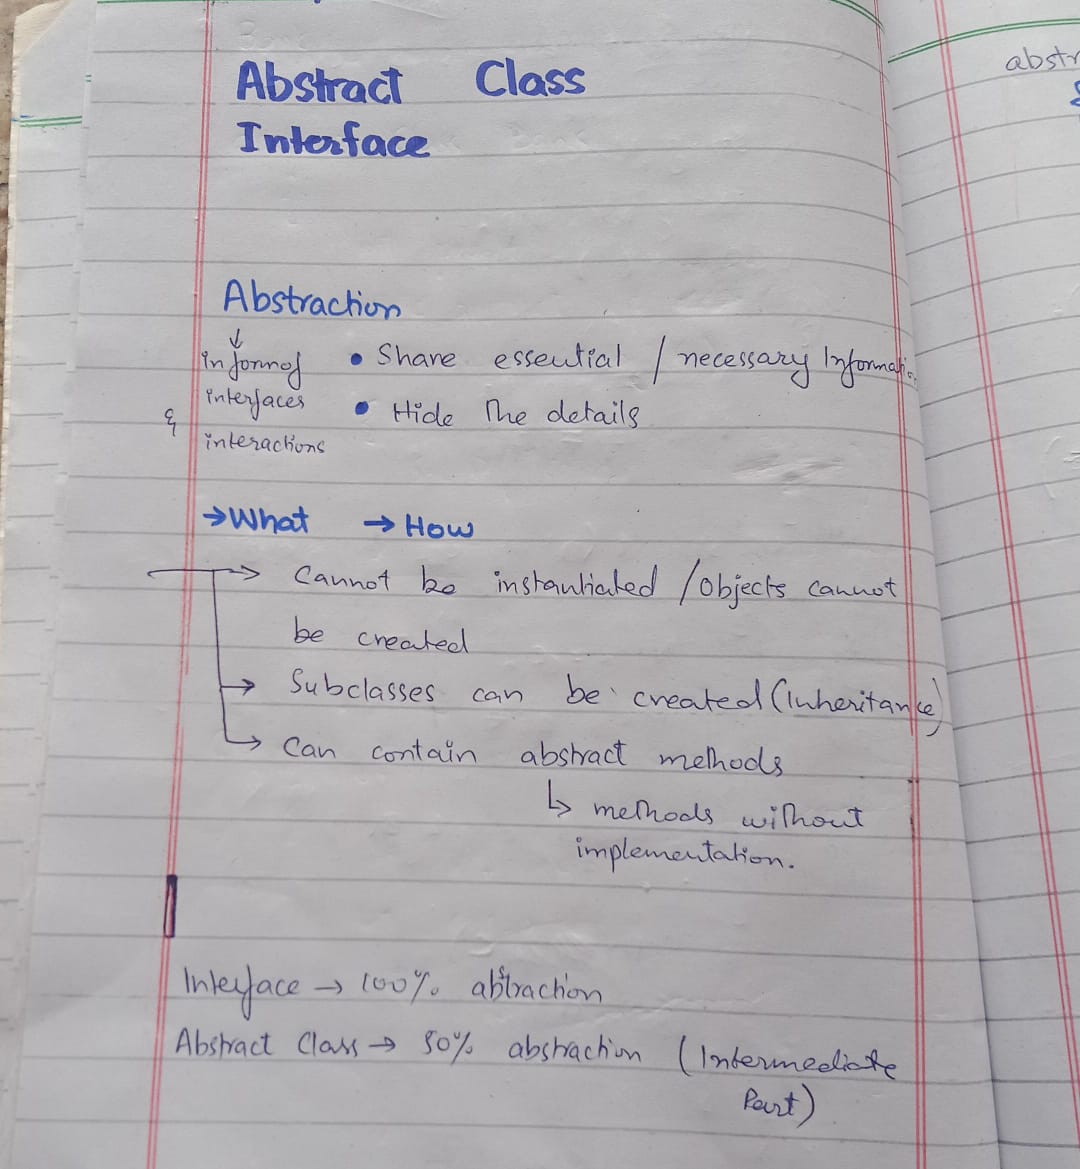 Abstract Class
Interface
Abstraction
↓
in form of
interfaces
&
interactions
• Share essential / necessary Information
• Hide the details
→What →How
→ Cannot be instantiated / Objects cannot
be created
→ Subclasses can be created (Inheritance)
→ Can contain abstract methods
↳ methods without
implementation.
Interface → 100% abstraction
Abstract Class → 50% abstraction (Intermediate
Part)
abstr